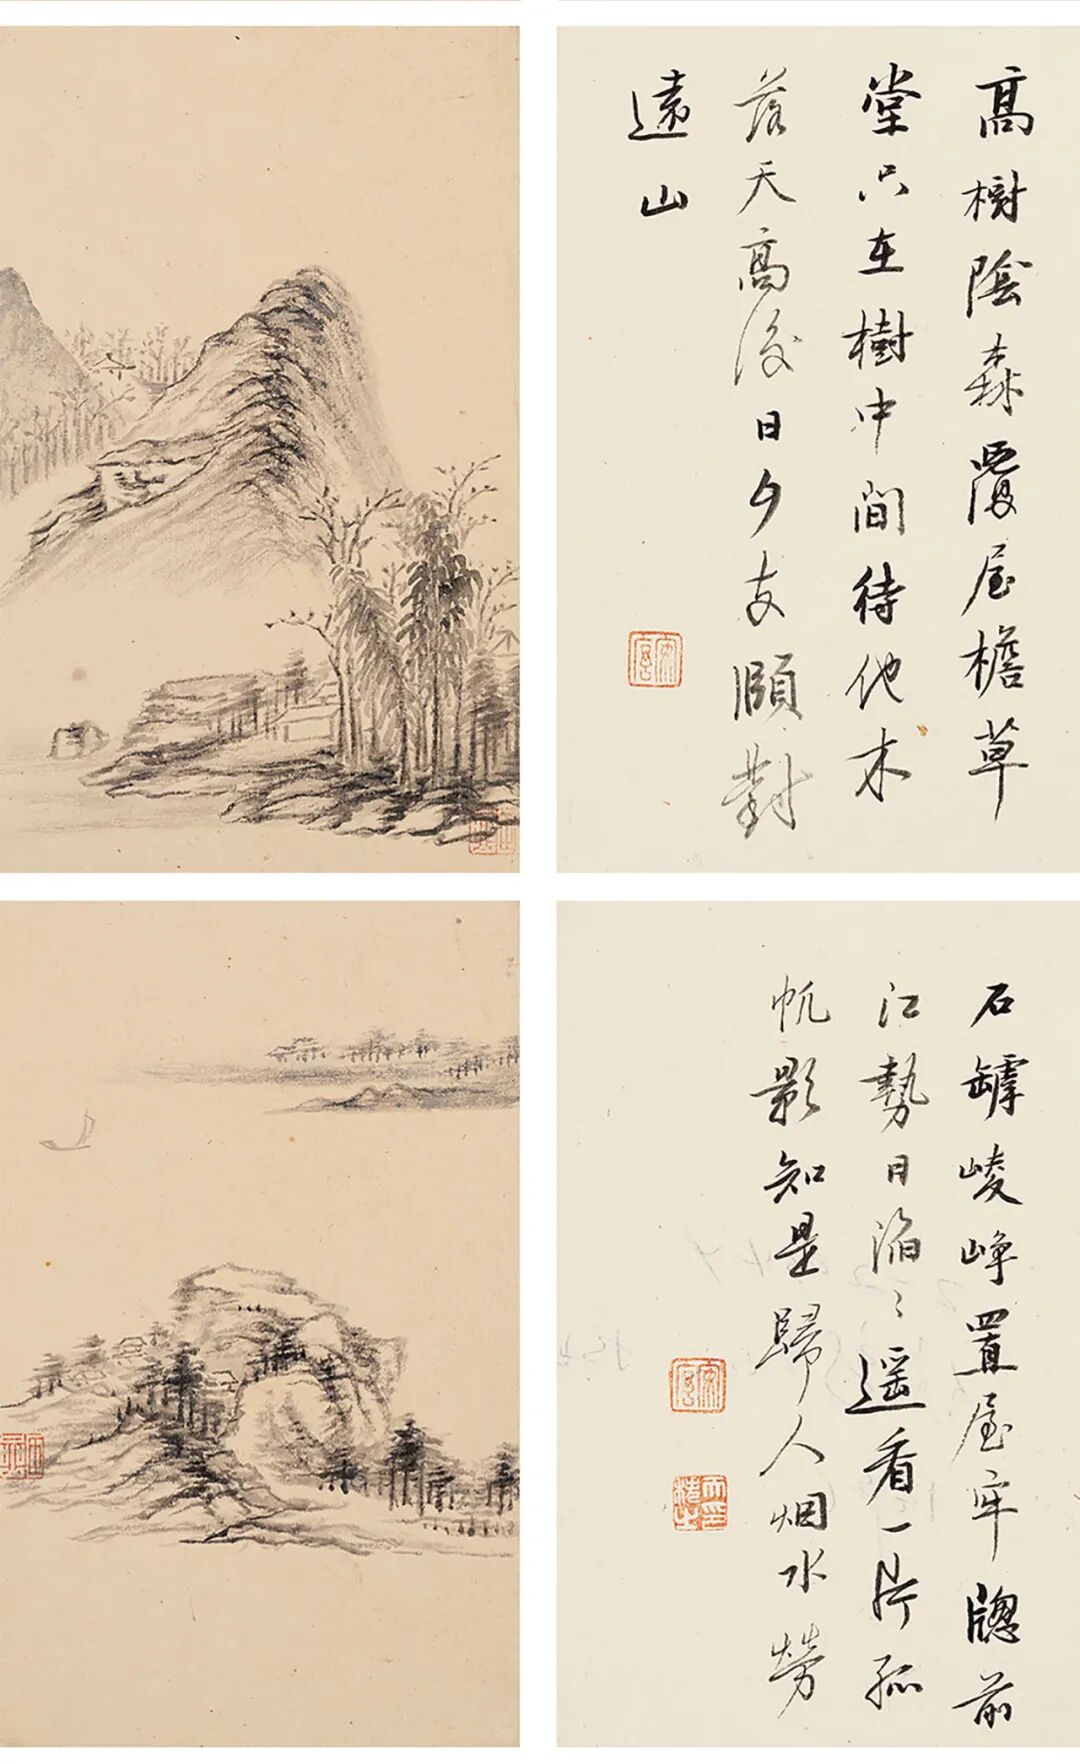 高樹陰森覆屋檐草
堂只在樹中間待他木
落天高後日夕支頤對
遠山
石罅崚崢置屋牢牕前
江勢日滔〻遥看一片孤
帆影知是歸人烟水勞